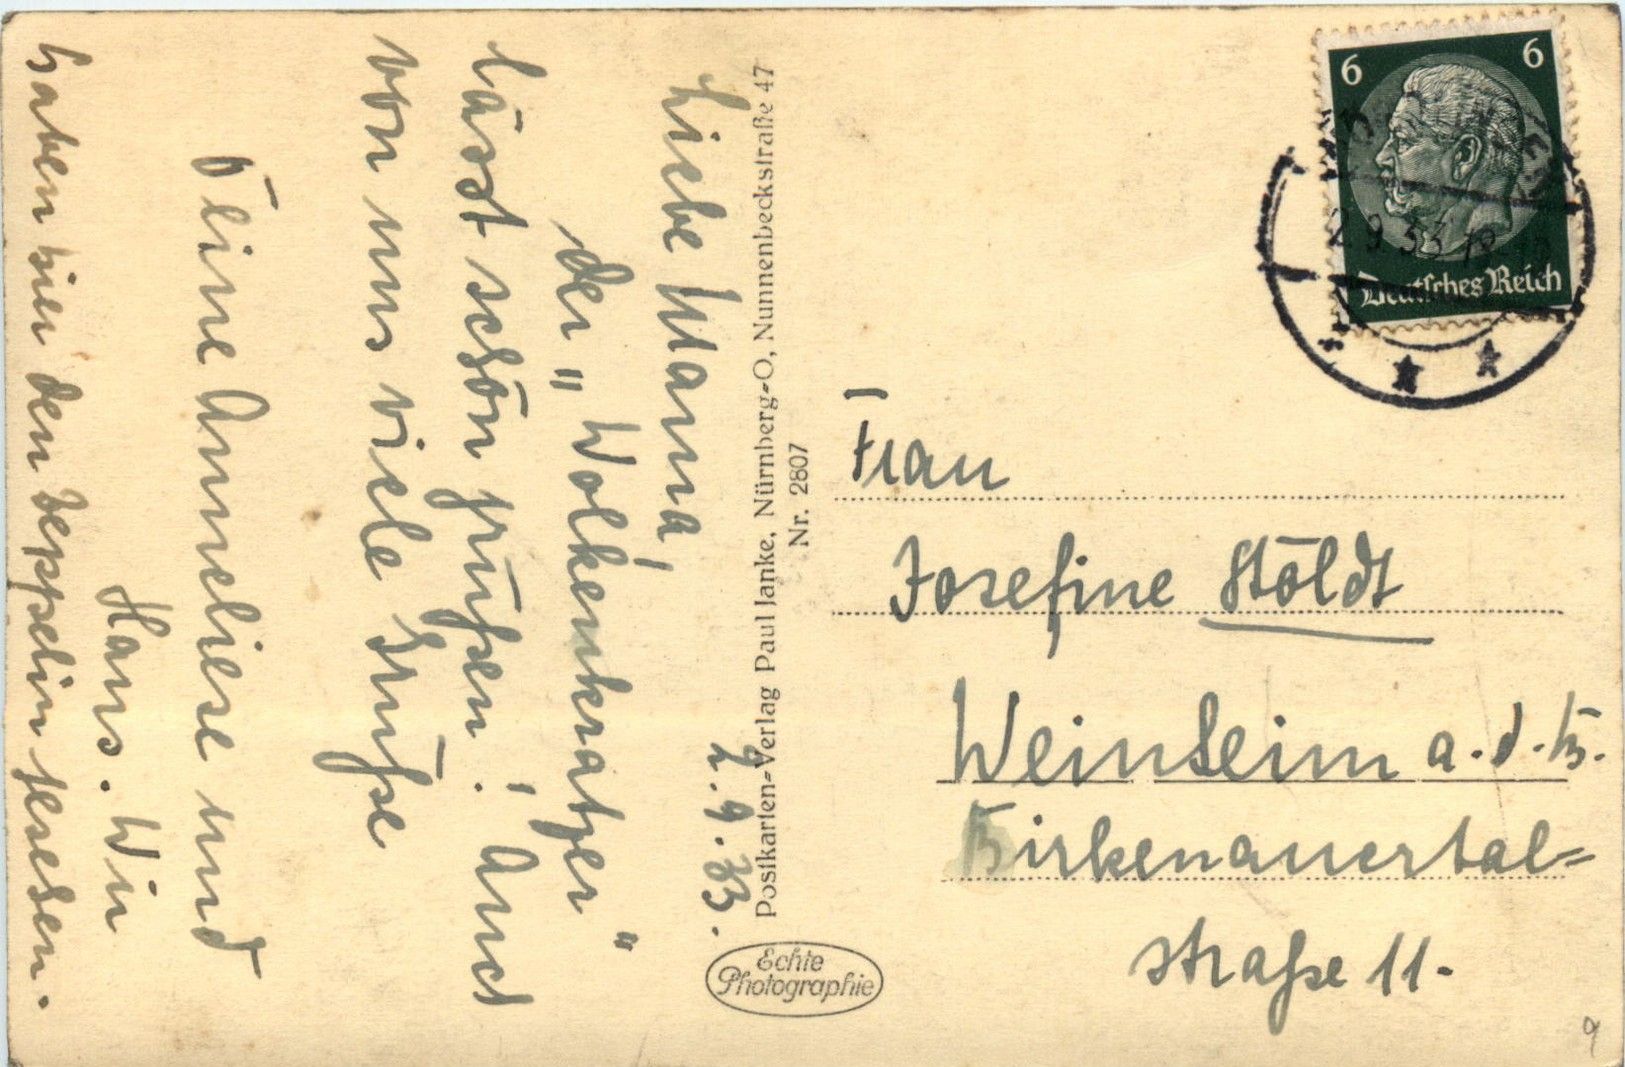 2.9.33.
Liebe Mama,
der "Wolkenkratzer"
lässt schön grüßen! Auch
von uns viele Grüße
Deine Anneliese und
Hans. Wir
haben hier den Zeppelin gesehen.
Postkarten-Verlag Paul Janke, Nürnberg-O, Nunnenbeckstraße 47
Nr. 2807
Echte
Photographie
6 6
Deutsches Reich
2.9.33.19
Frau
Josefine Stöldt
Weinheim a.d.B.
Birkenauertal=
straße 11.
9